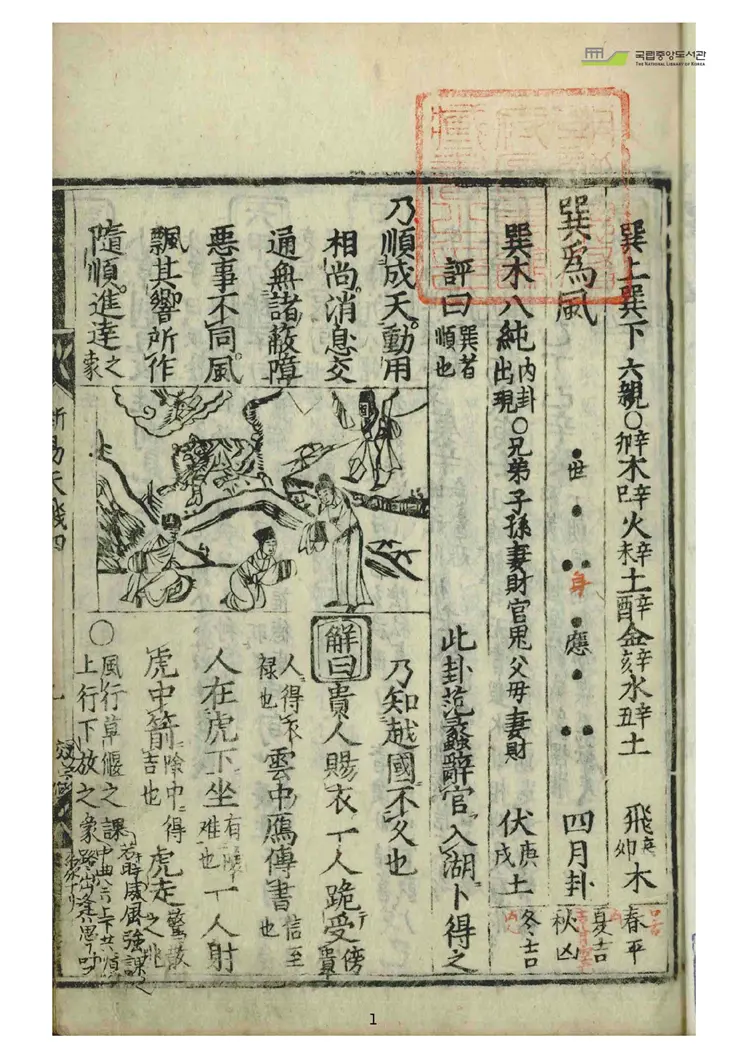 국립중앙도서관
THE NATIONAL LIBRARY OF KOREA
巽上巽下 六親〇辛卯木辛巳火辛未土辛酉金辛亥水辛丑土 飛庚卯木
春平
巽爲風 世 身 應 四月卦
夏吉
秋凶
巽木八純內卦出現〇兄弟子孫妻財官鬼父母妻財 伏庚戌土
冬吉
評曰巽者順也
此卦范蠡辭官入湖卜得之
乃順成天動用
相尚消息交
通無諸蔽障
惡事不同風
飄其響所作
隨順進達之象
乃知越國不久也
解曰貴人賜衣一人跪受
人得衣祿也 雲中鴈傳書信至也
人在虎下坐有難也 一人射
虎中箭險中得吉也 虎走驚散之兆
〇風行草偃之課
上行下放之象
新易天機四
1